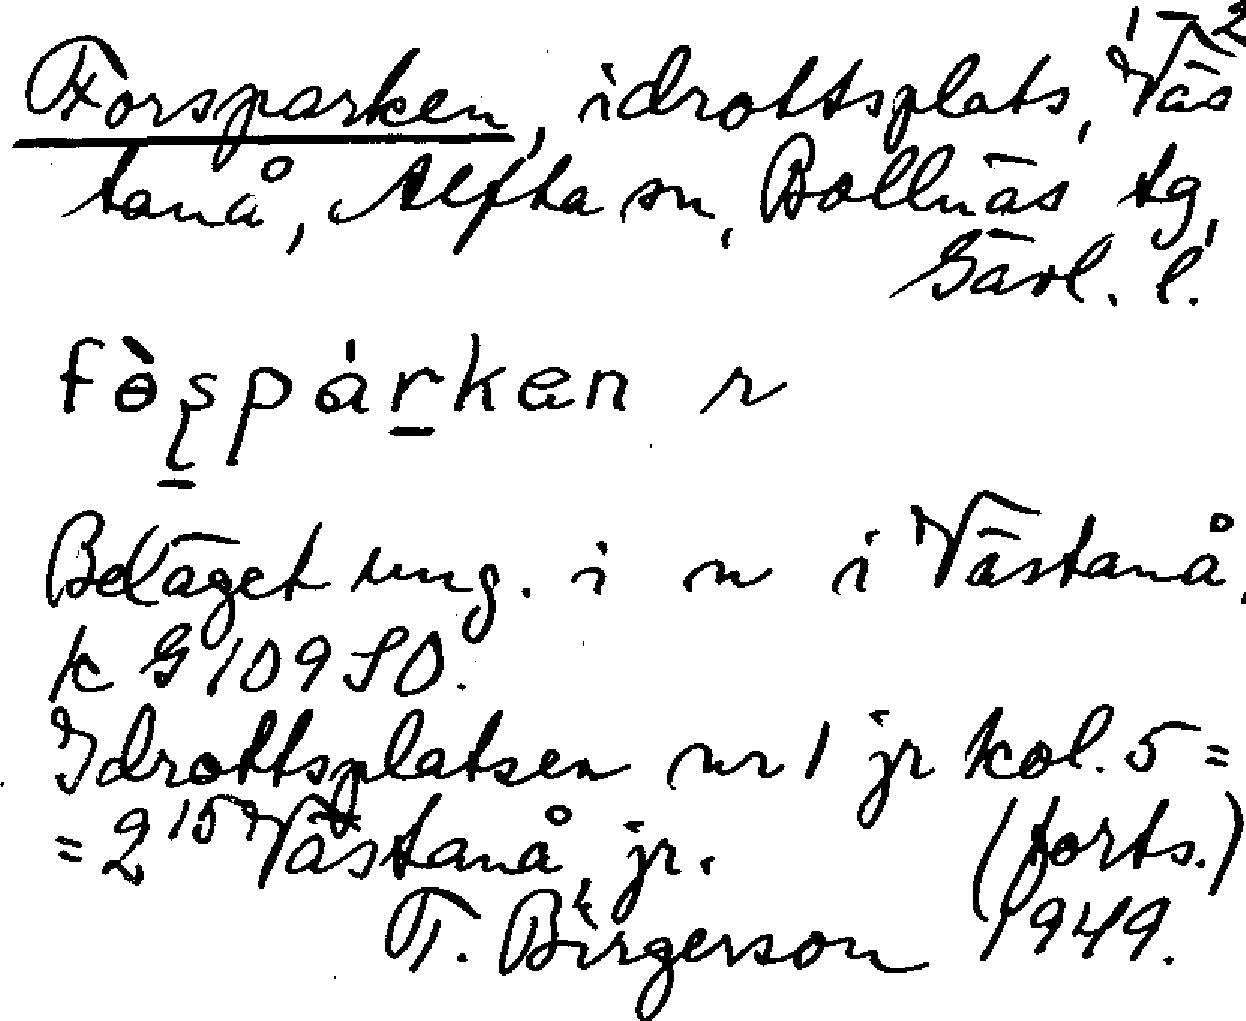 1-2
Forsparken, idrottsplats, Väs
tanå, Alfta sn, Bollnäs tg,
Gävl. l.
fòspárken n
Beläget ung. i n i Västanå,
k G 109 SO.
Idrottsplatsen nr 1 jr kol. 5 =
= 2 15 Västanå, jr. (forts.)
T. Birgerson 1949.